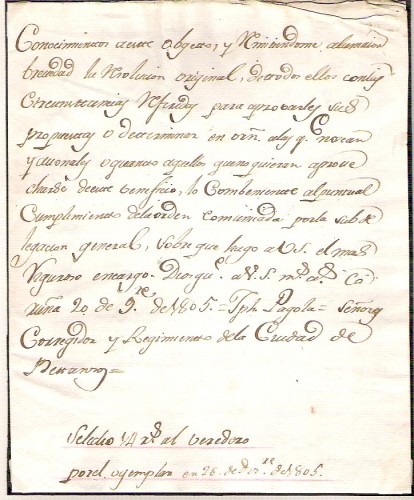 Conocimientos de este Objeto, y Remitiendome, a la maior
brevedad la Relacion original, de todos ellos con las
Circunstancias Referidas para aprobarles sus
propuestas o determinar en orn. a los q. Ignoran
y quanto aquellos que no quieran aprove
charse de este beneficio, lo Combeniente al puntual
Cumplimiento de la orden comunicada por la subde
legacion general, sobre que hago a V.S. el mas
Riguroso encargo. Dios gue. a V.S. ms. as. Co
ruña 20 de 9.re de 1805. = Jph. Pagola = Señores
Corregidor y Regimiento de la Ciudad de
Betanzos =
Se le dio 14 rs. al veredero
por el exemplar en 26 de 1805.